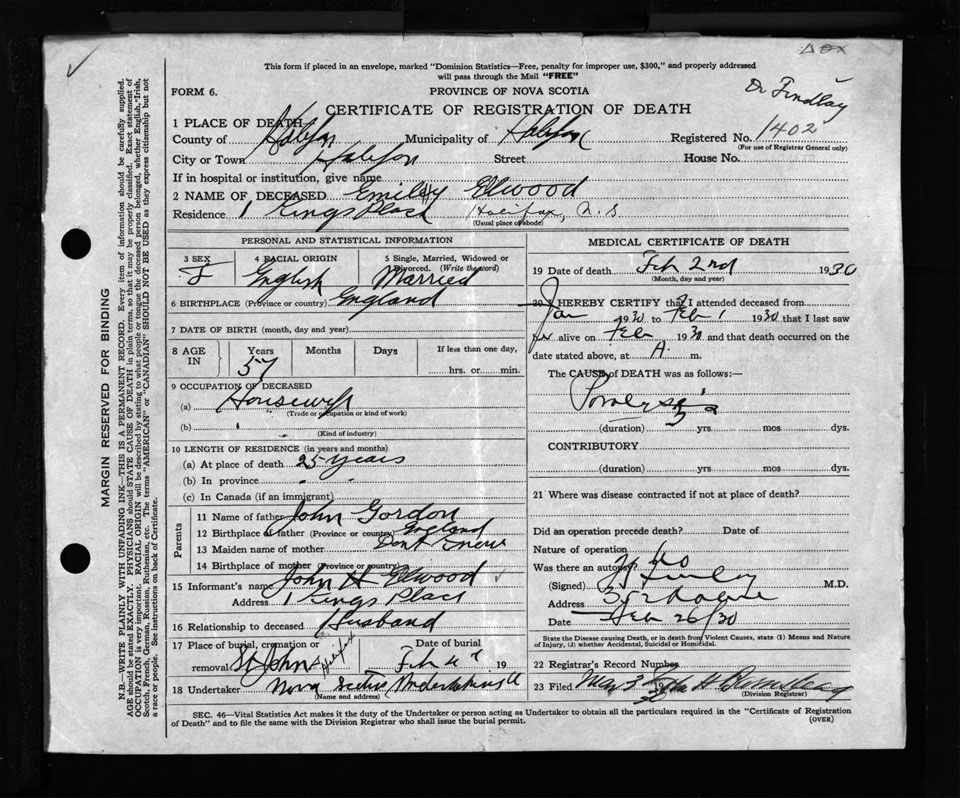 This form if placed in an envelope, marked "Dominion Statistics—Free, penalty for improper use, $300," and properly addressed
will pass through the Mail "FREE"
FORM 6.
PROVINCE OF NOVA SCOTIA
Dr Findlay
CERTIFICATE OF REGISTRATION OF DEATH
1 PLACE OF DEATH
County of Halifax Municipality of Halifax Registered No. 1402
(For use of Registrar General only)
City or Town Halifax Street House No.
If in hospital or institution, give name
2 NAME OF DECEASED Emily Ellwood
Residence 1 Kings Place Halifax, N. S
(Usual place of abode)
PERSONAL AND STATISTICAL INFORMATION
3 SEX 4 RACIAL ORIGIN 5 Single, Married, Widowed or Divorced. (Write the word)
F English Married
6 BIRTHPLACE (Province or country) England
7 DATE OF BIRTH (month, day and year)
8 AGE IN Years Months Days If less than one day,
57 hrs. or min.
9 OCCUPATION OF DECEASED
(a) Housewife
(Trade or occupation or kind of work)
(b)
(Kind of industry)
10 LENGTH OF RESIDENCE (in years and months)
(a) At place of death 25 years
(b) In province " "
(c) In Canada (if an immigrant)
Parents
11 Name of father John Gordon
12 Birthplace of father (Province or country) England
13 Maiden name of mother Dont Know
14 Birthplace of mother (Province or country)
15 Informant's name John H Ellwood
Address 1 Kings Place
16 Relationship to deceased Husband
17 Place of burial, cremation or removal St Johns Halifax Date of burial Feb 4 19
18 Undertaker Nova Scotia Undertaking Co
(Name and address)
MEDICAL CERTIFICATE OF DEATH
19 Date of death Feb 2nd 1930
(Month, day and year)
20 I HEREBY CERTIFY that I attended deceased from
Jan 1930 to Feb 1 1930 that I last saw
her alive on Feb 1930 and that death occurred on the
date stated above, at A. m.
The CAUSE of DEATH was as follows:—
Paralysis
(duration) 3 yrs mos dys.
CONTRIBUTORY
(duration) yrs mos dys.
21 Where was disease contracted if not at place of death?
Did an operation precede death? Date of
Nature of operation
Was there an autopsy? No
(Signed) M.D.
Address
Date Feb 26/30
State the Disease causing Death, or in death from Violent Causes, state (1) Means and Nature
of Injury, (2) whether Accidental, Suicidal or Homicidal.
22 Registrar's Record Number
23 Filed
(Division Registrar)
SEC. 46—Vital Statistics Act makes it the duty of the Undertaker or person acting as Undertaker to obtain all the particulars required in the "Certificate of Registration
of Death" and to file the same with the Division Registrar who shall issue the burial permit. (OVER)
MARGIN RESERVED FOR BINDING
N.B.—WRITE PLAINLY WITH UNFADING INK—THIS IS A PERMANENT RECORD. Every item of information should be carefully supplied.
AGE should be stated EXACTLY. PHYSICIANS should STATE CAUSE OF DEATH in plain terms, so that it may be properly classified. Exact statement of
OCCUPATION is very important. RACIAL ORIGIN will be described by stating to what people or tongue the deceased person belonged, whether English, Irish,
Scotch, French, German, Russian, Ruthenian, etc. The terms "AMERICAN" or "CANADIAN" SHOULD NOT BE USED as they express citizenship but not
a race or people. See instructions on back of Certificate.